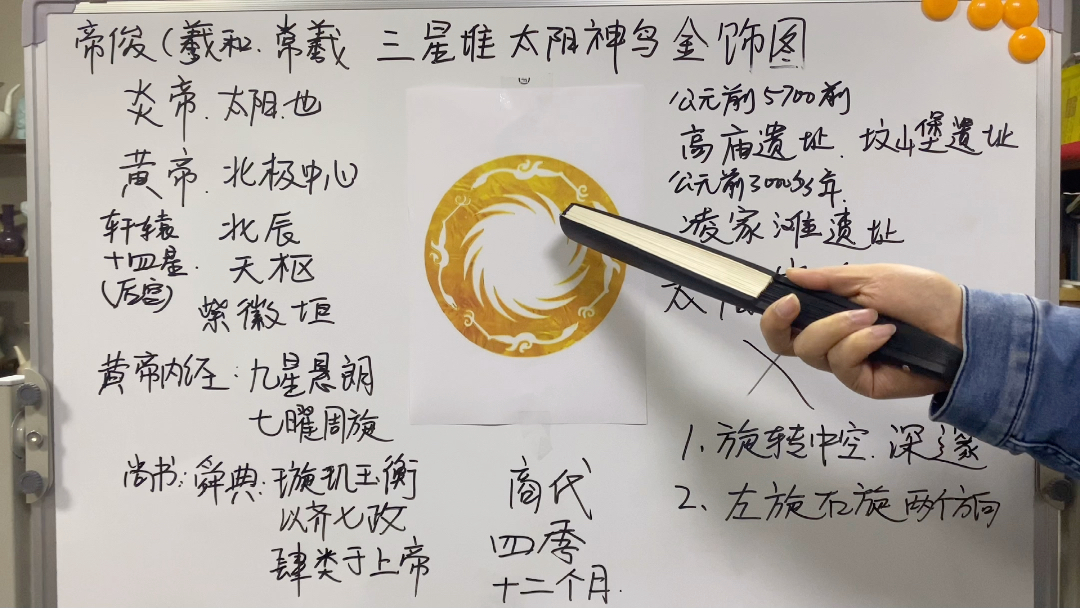 帝俊(羲和.常羲 三星堆太阳神鸟金饰图
炎帝.太阳也
黄帝.北极中心
轩辕 北辰
十四星. 天枢
(后宫)
紫微垣
黄帝内经:九星悬朗
七曜周旋
尚书:舜典:璇玑玉衡
以齐七政
肆类于上帝
商代
四季
十二个月.
公元前5700前
高庙遗址.坟山堡遗址
公元前3000多年.
凌家滩遗址
太阳
1.旋转中空.深邃
2、左旋右旋两个方向